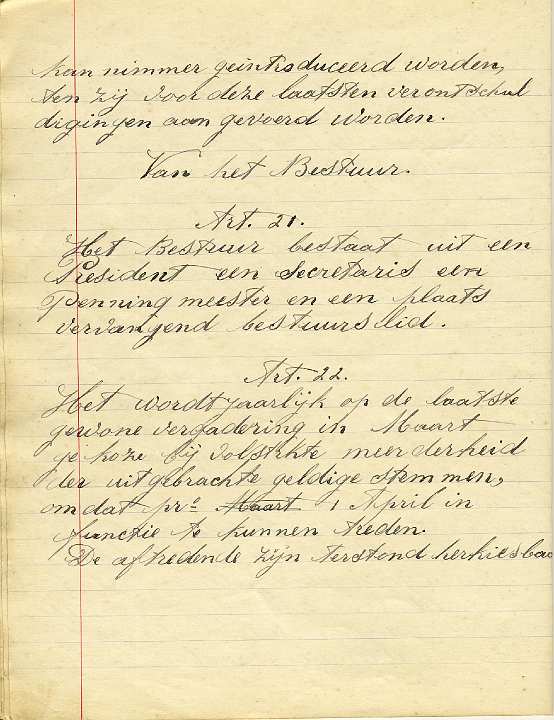 kan nimmer geintroduceerd worden,
ten zij voor deze laatsten verontschul
digingen aan gevoerd worden.
Van het Bestuur.
Art. 21.
Het Bestuur bestaat uit een
President een Secretaris een
Penning meester en een plaats
vervangend bestuurs lid.
Art. 22.
Het wordt jaarlijk op de laatste
gewone vergadering in Maart
gekoze bij volstrekte meerderheid
der uitgebrachte geldige stemmen,
om dat pro Maart 1 April in
functie te kunnen treden.
De aftredende zijn terstond herkiesbaa